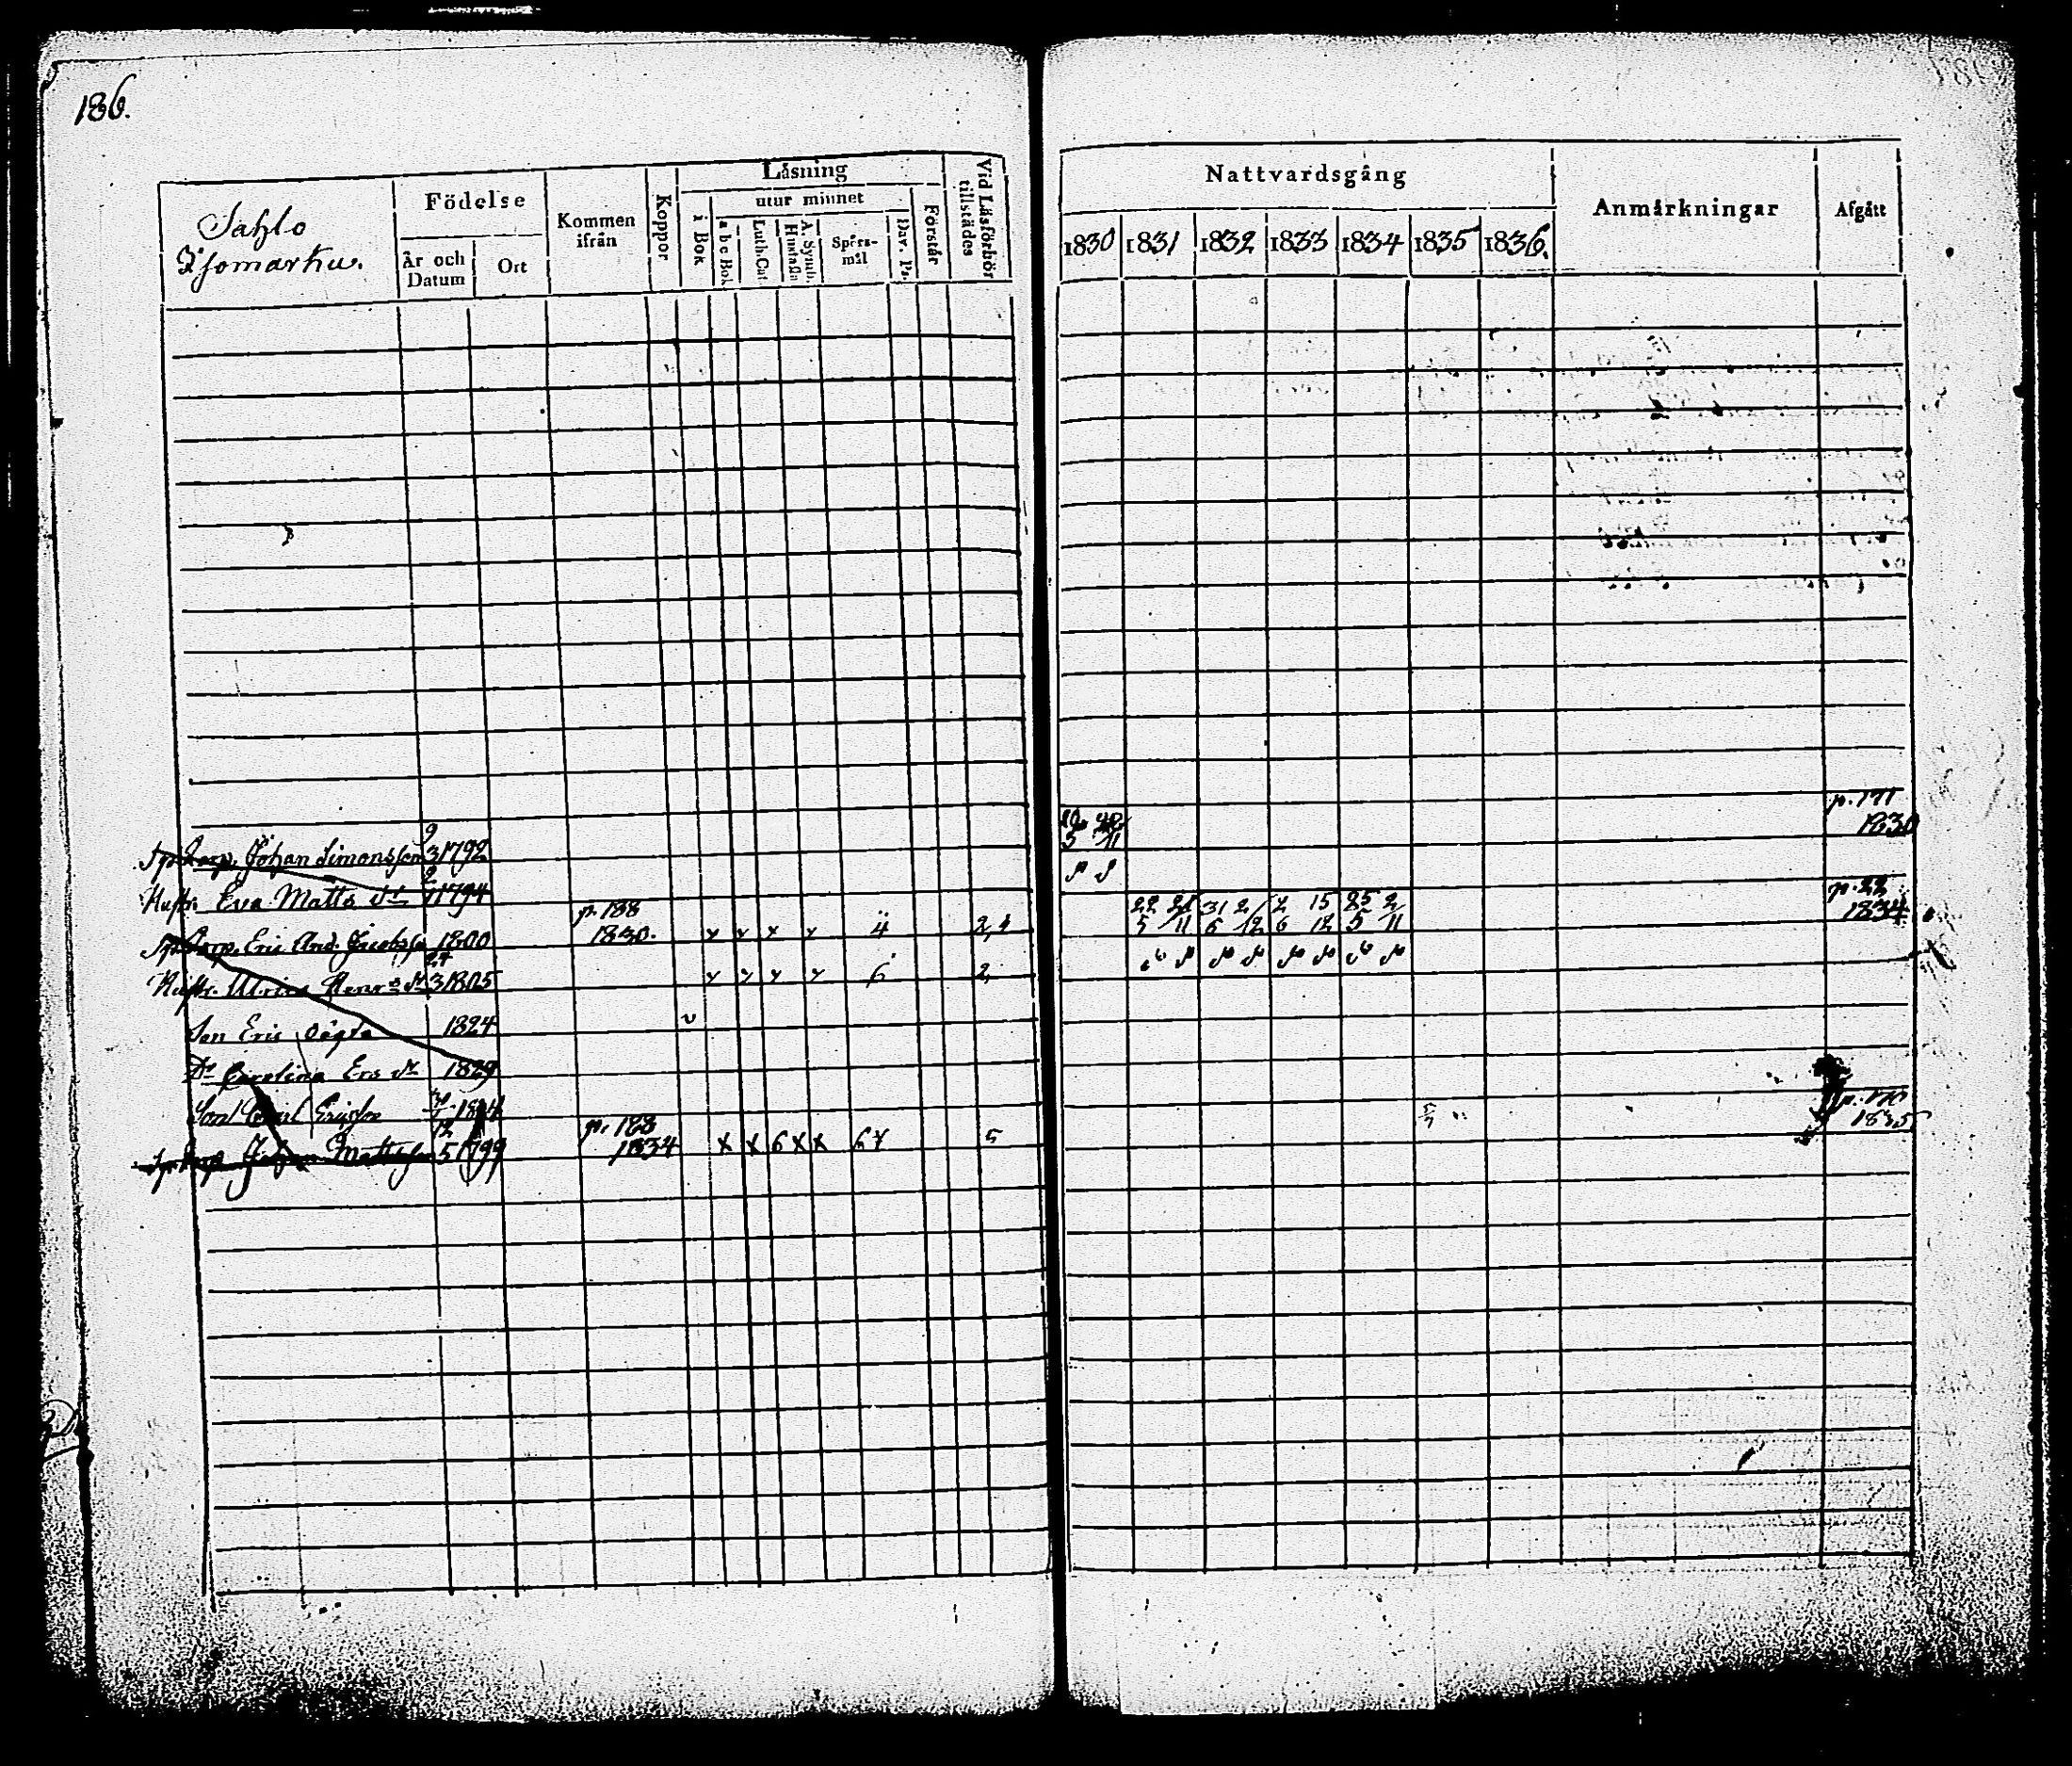 186.
Sahlo
Isomarku.
Födelse
År och Datum
Ort
Kommen ifrån
Koppor
Läsning
i Bok
utur minnet
a b c Bok
Luth. Cat.
A. Symb. Hustafla
Spörsmål
Dav. Ps.
Förstår
Vid Läsförhör tillstädes
Nattvardsgång
1830 1831 1832 1833 1834 1835 1836.
Anmärkningar
Afgått
Johan Simonsson 9 3 1792 p. 171 1830
Hustr. Eva Matts dr 1794
Eric And. Jacobsson 1800 p. 188 1830. 4 2,4 22/5 21/11 31/6 2/12 2/6 15/12 25/5 2/11 p. 22 1834
Hustr. Ulrica Henrs dr 24 3 1805 6 2,
Son Eric 1824
Dr Carolina Ers dr 1829
Son Carl Ericsson
Johan Mattsson 12 5 1799 p. 188 1834 x x 6 x x 6 5 1835